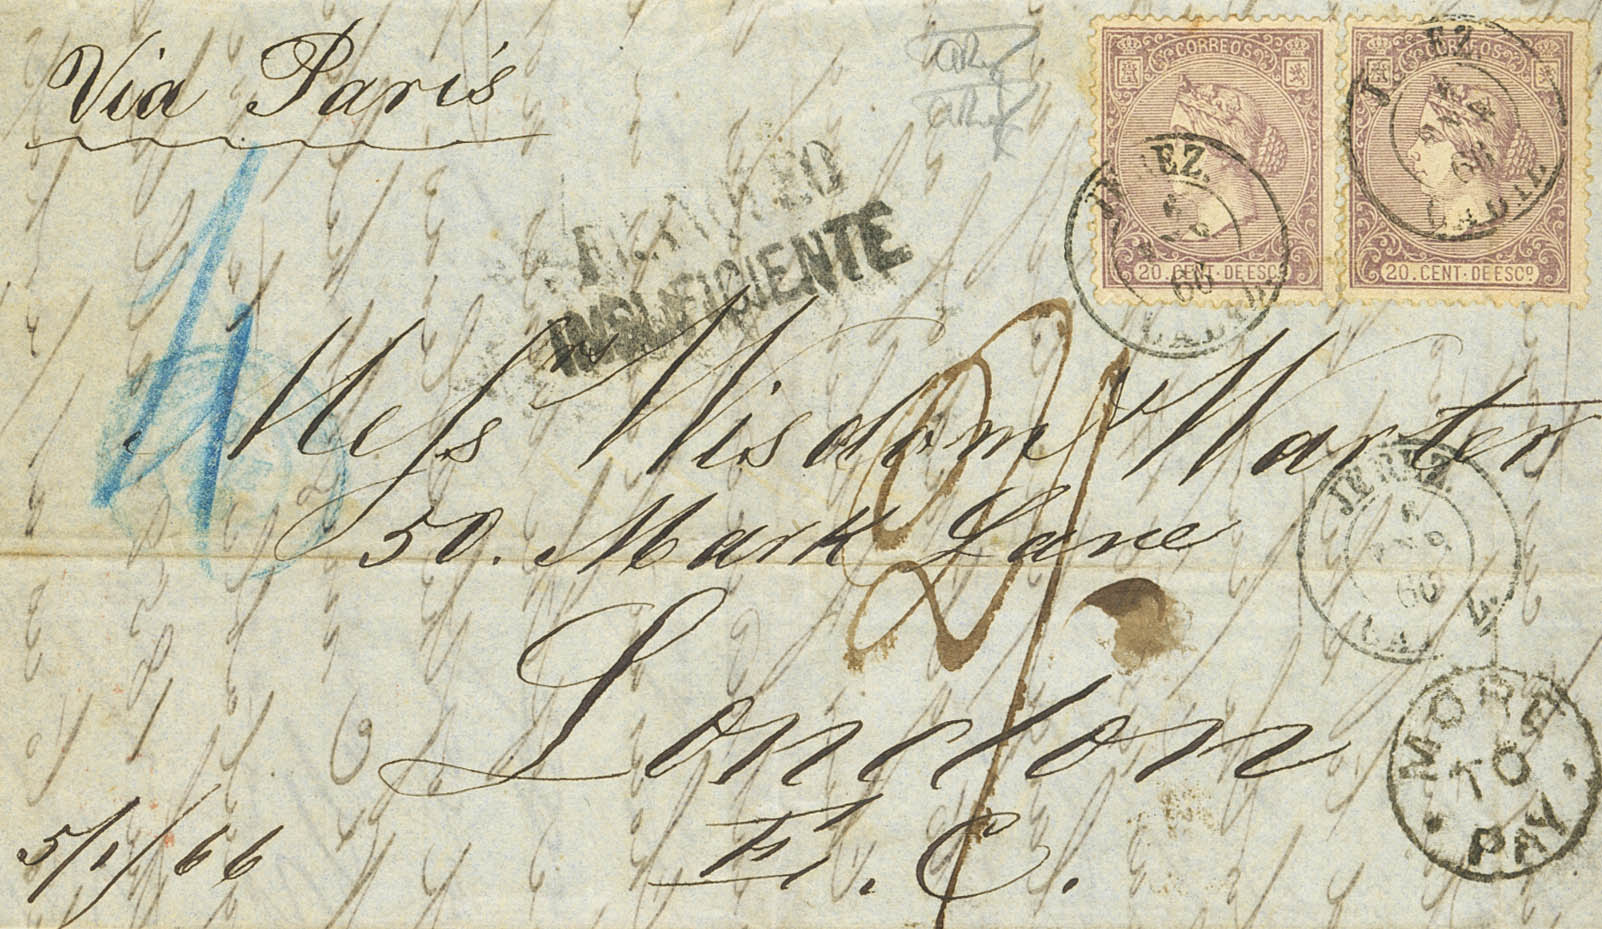 Via Paris
CORREOS
20. CENT. DE ESCº
CORREOS
20. CENT. DE ESCº
JEREZ.
6
66
CADIZ
JEREZ
66
CADIZ
FRANQUEO
INSUFICIENTE
4
2/
Mess Wisdom & Warter
50. Mark Lane
London
E. C.
JEREZ.
66
CADIZ.
MORE
TO
PAY
5/1/66